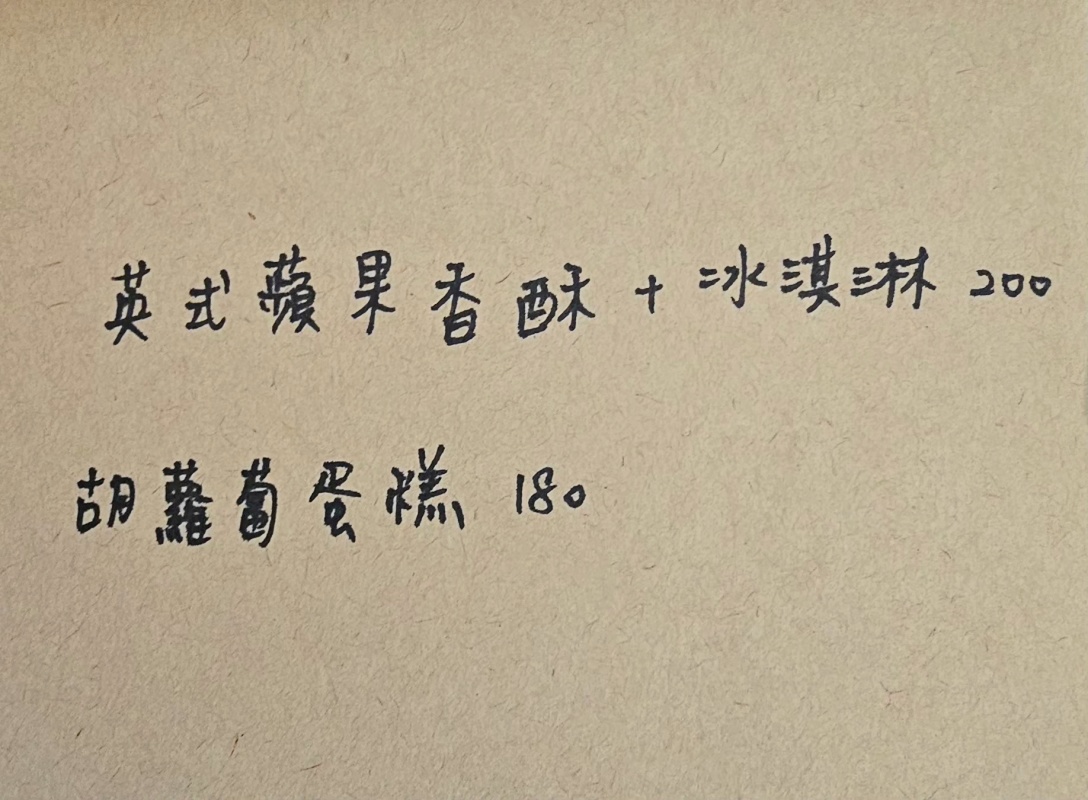 英式蘋果香酥+冰淇淋 200
胡蘿蔔蛋糕 180